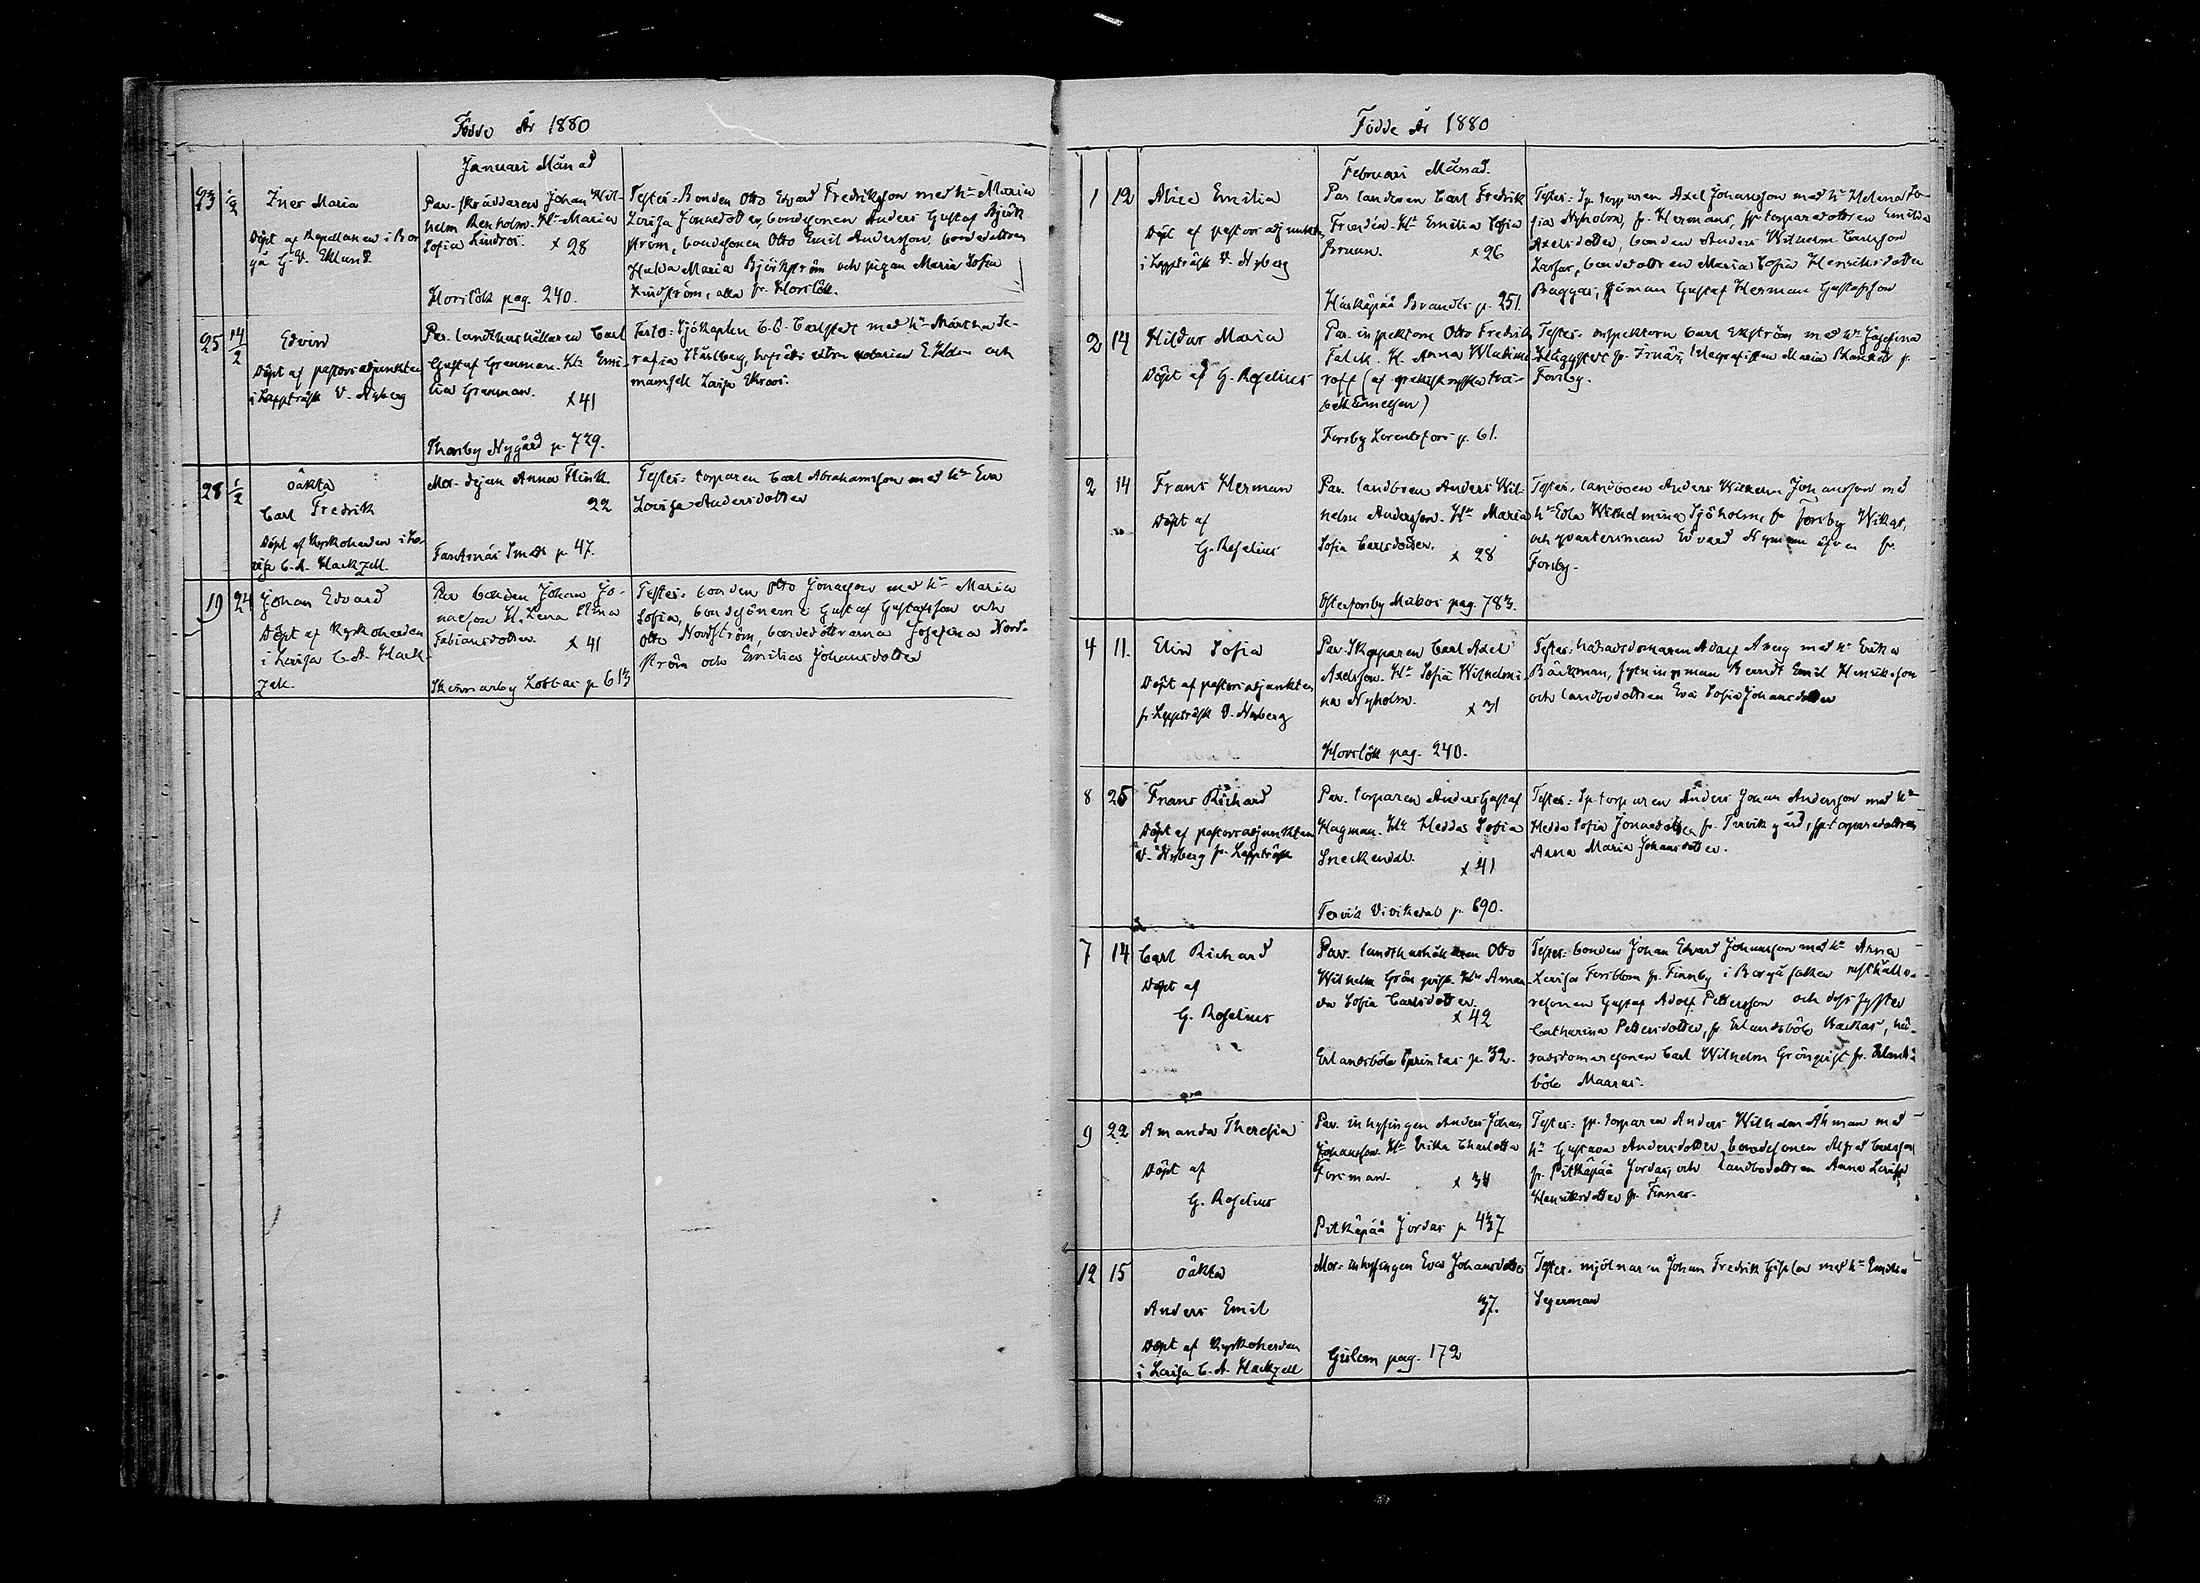 Födde År 1880
Januari Månad
23 1/2 Iner Maria
Döpt af Kapellanen i Bor
gå G. V. Eklund
Par. skräddaren Johan Wil-
helm Renholm. H:u Maria
Sofia Lindros. x 28
Horslök pag. 240.
Testes: Bonden Otto Edvard Fredriksson med h:u Maria
Lovisa Jonaedotter, bondesonen Anders Gustaf Björk
ström, bondesonen Otto Emil Andersson, bondedottren
Hulda Maria Björkström och pigan Maria Sofia
Lindström, alla fr. Horslök.
25 14/2 Edvin
Döpt af pastorsadjunkten
i Lappträsk V. Nyberg
Par. landthushållaren Carl
Gustaf Grenman. H:u Emi-
lia Grenman. x 41
Thorsby Nygård p. 729.
Testes: Sjökapten C. G. Carlstedt med h:u Märtha Se-
rafia Ståhlberg, notarien E. Elden och
mamsell Lovisa Ekroos.
28 1/2 oäkta
Carl Fredrik
Döpt af Kyrkoherden i Lo-
visa C. A. Hackzell.
Mor. dejan Anna Flink.
22
Fantsnäs Smeds p. 47.
Testes: torparen Carl Abrahamsson med h:u Eva
Lovisa Andersdotter
19 24 Johan Edvard
Döpt af Kyrkoherden
i Lovisa C. A. Hack-
zell.
Par bonden Johan Jo-
naeson H. Lena Stina
Fabiansdotter. x 41
Skinnarby Lobbas p 613
Testes: bonden Otto Jonaeson med h:u Maria
Sofia, bondsönerne Gustaf Gustafsson och
Otto Nordström, bondedöttrarna Josefina Nord-
ström och Emilia Johansdotter
Födde År 1880
Februari Månad.
1 12 Alina Emilia
Döpt af pastorsadjunkten
i Lappträsk V. Nyberg
Par landboen Carl Fredrik
Frondén. H:u Emilia Sofia
Bruun. x 26
Härkäpää Brandts p. 251.
Testes: Sp. torparen Axel Johansson med h:u Helena So-
fia Nyholm, fr. Hermans, sp. torparedottren Emilia
Axelsdotter, bonden Anders Wilhelm Carlsson
Lassas, bondedottren Maria Sofia Henriksdotter
Baggas, sjöman Gustaf Herman Gustafsson
2 14 Hildur Maria
Döpt af G. Roselius
Par. inspektorn Otto Fredrik
Falck. H. Anna Wladimi
roff (af grekisk ryska tros-
bekännelsen)
Forsby Lorentsfors p. 61.
Testes: inspektorn Carl Ekström med h:u Josefina
Häggqvist fr. telegrafisten Maria fr.
Forsby.
2 14 Frans Herman
Döpt af
G. Roselius
Par. landboen Anders Wil-
helm Andersson. H:u Maria
Sofia Carlsdotter. x 28
Österforsby Mikos pag. 783.
Testes, landboen Anders Wilhelm Johansson med
h:u Eda Wilhelmina Sjöholm, fr. Forsby Wikas,
och qvartersman Edvard Nyman äfven fr.
Forsby.
4 11. Elin Sofia
Döpt af pastorsadjunkten
fr. Lappträsk V. Nyberg
Par. Skepparen Carl Axel
Axelsson. H:u Sofia Wilhelmi-
na Nyholm. x 31
Horslök pag. 240.
Testes: häradsdomaren Adolf Åberg med h:u Erika
Bäckman, Berndt Emil Henriksson
och landbodottren Eva Sofia Johansdotter
8 25 Frans Richard
Döpt af pastorsadjunkten
V. Nyberg fr. Lappträsk
Par. torparen Anders Gustaf
Hagman. H:u Hedda Sofia
Sneckendal. x 41
Tervik Vivikedal p. 690.
Testes: Sp torparen Anders Johan Andersson med h:u
Hedda Sofia Jonaedotter fr. Tervik gård, sp. torparedottren
Anna Maria Johansdotter.
7 14 Carl Richard
Döpt af
G. Roselius
Par. landthushållaren Otto
Wilhelm Grönqvist. H:u Aman-
da Sofia Carlsdotter
x 42
Erlandsböle Sprintas p. 32.
Testes: bonden Johan Edvard Johansson med h:u Anna
Lovisa Forsblom fr. Finnby i Borgå socken rusthålla-
resonen Gustaf Adolf Pettersson och dess syster
Catharina Pettersdotter, fr Erlandsböle Backas, hä-
radsdomaresonen Carl Wilhelm Grönqvist fr. Erlands
böle Maaras.
9 22 Amanda Theresia
Döpt af
G. Roselius
Par. inhysingen Anders Johan
Johansson. H:u Erika Charlotta
Forsman. x 34
Pitkäpää Jordas p 437
Testes: sp. torparen Anders Wilhelm Åhman med
h:u Gustava Andersdotter, bondesonen Alfred Carlsson
fr. Pitkäpää Jordas, och landbodottren Anna Lovisa
Henriksdotter fr. Finnas.
12 15 oäkta
Anders Emil
Döpt af Kyrkoherden
i Lovisa C. A. Hackzell
Mor: inhysingen Eva Johansdotter
37.
Gislom pag. 172
Testes. mjölnaren Johan Fredrik Gisslen med h:u Emilia
Segerman